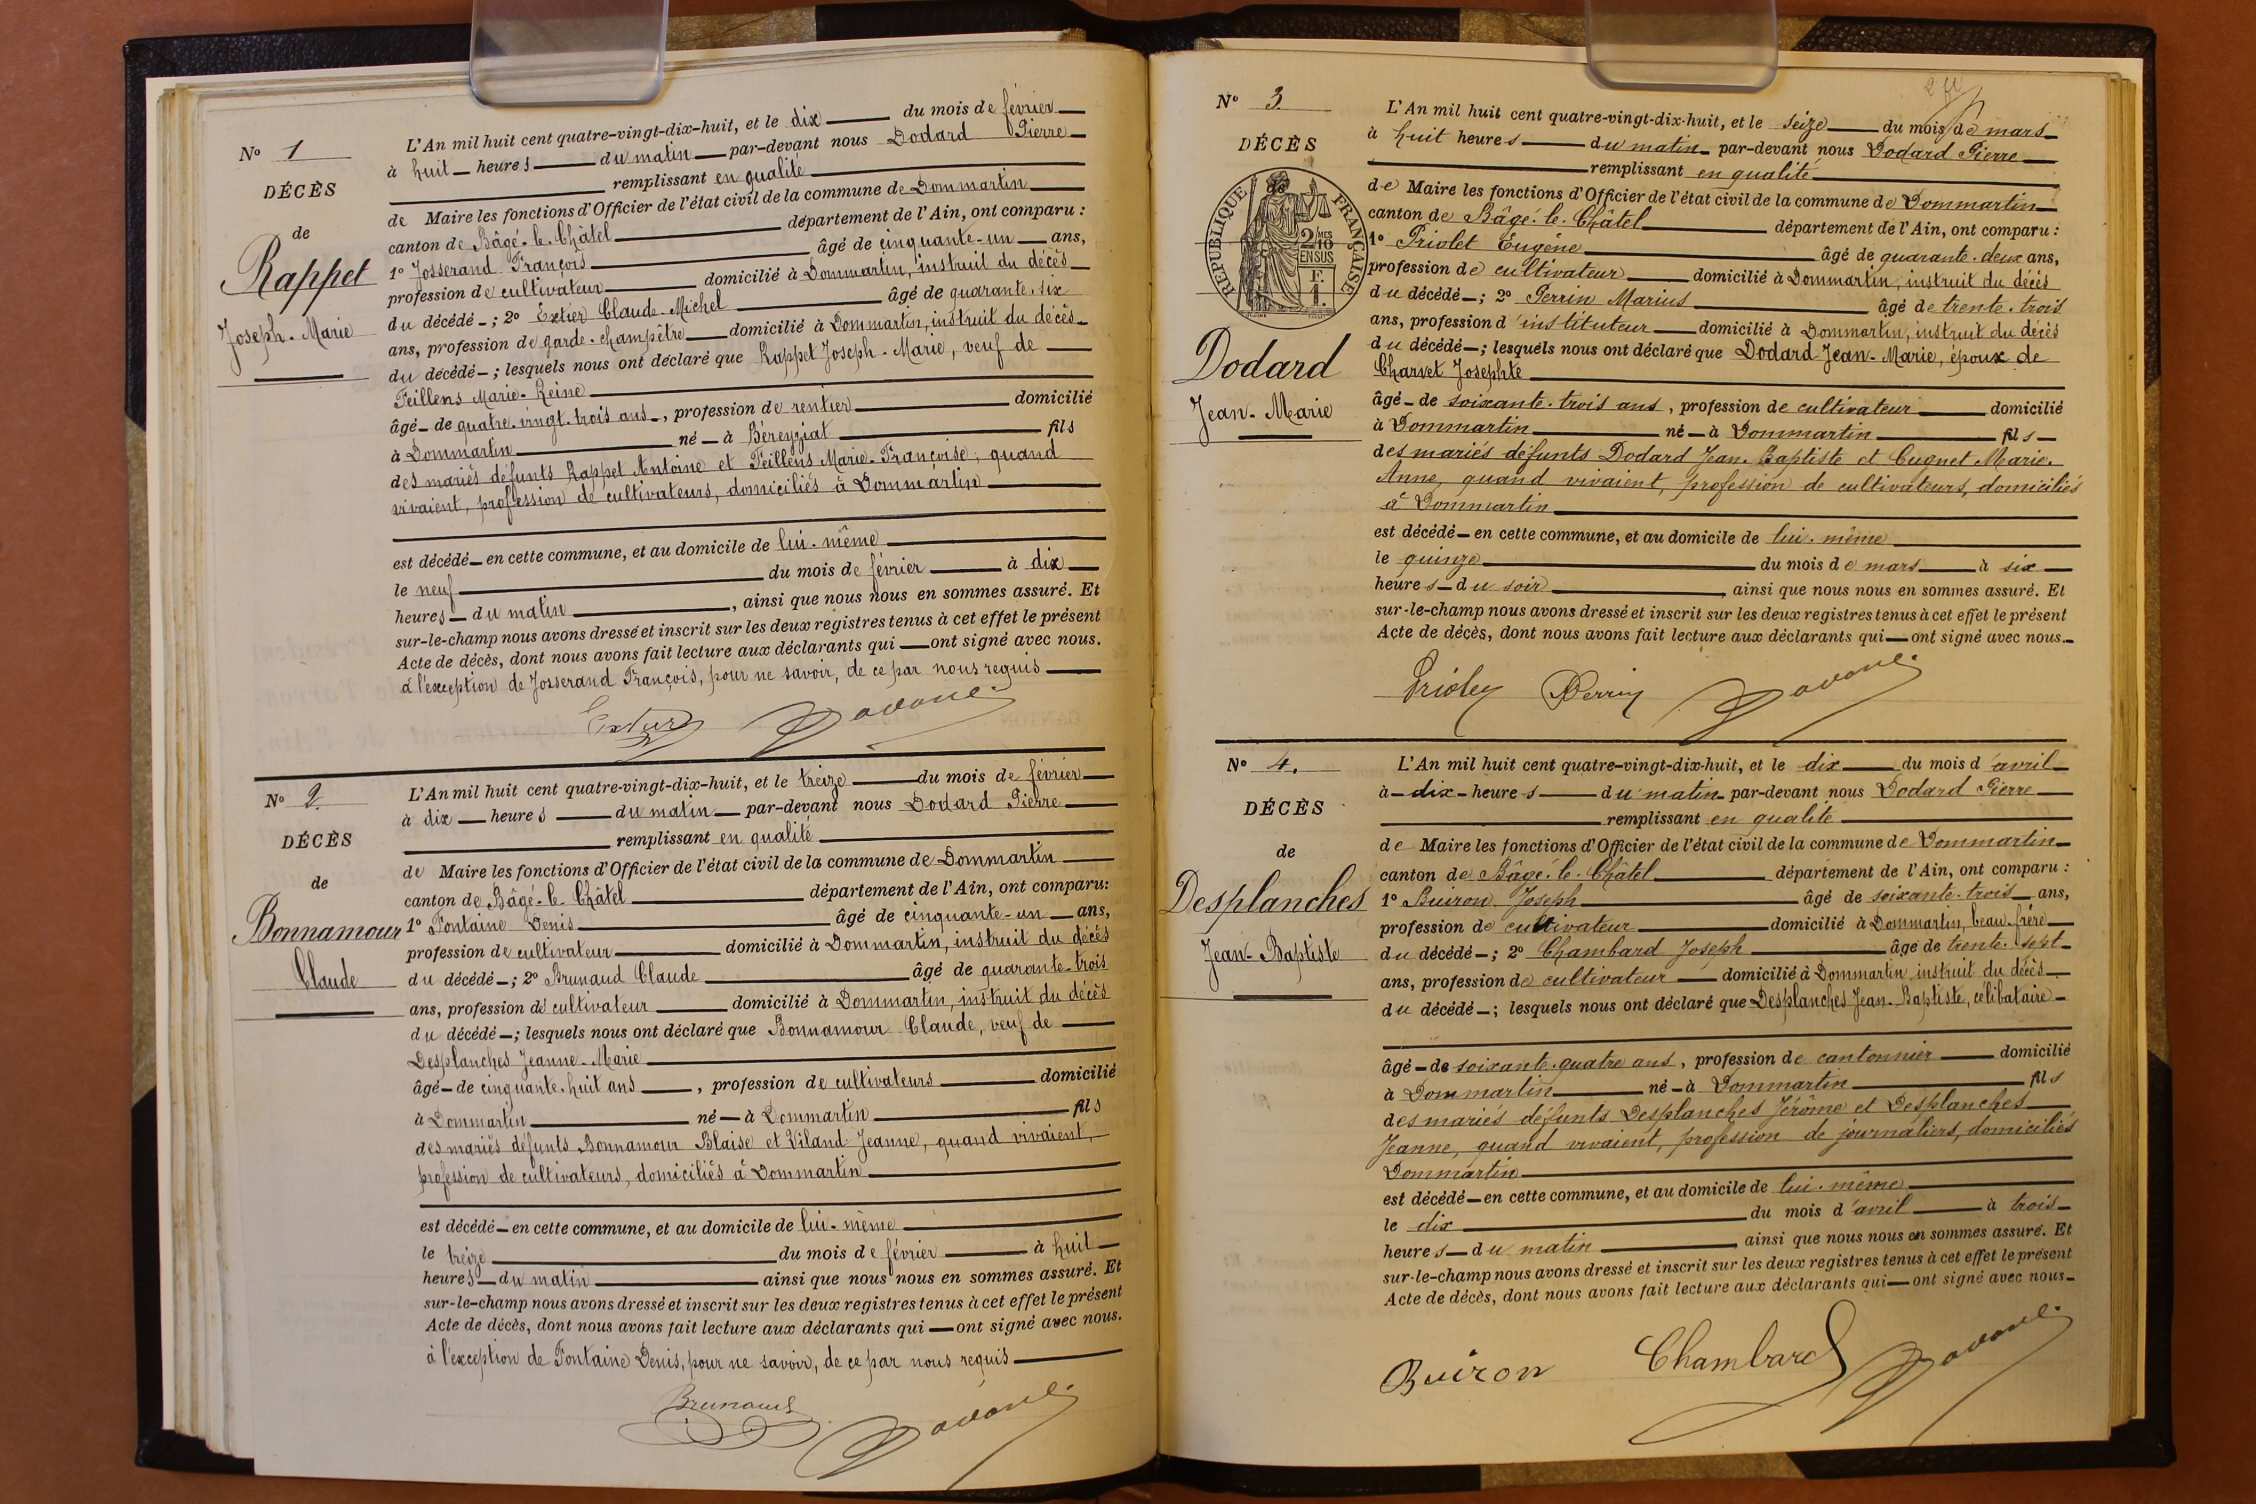 N° 1
DÉCÈS
de
Rappet
Joseph-Marie
L'An mil huit cent quatre-vingt-dix-huit, et le dix du mois de février
à huit heures du matin par-devant nous Dodard Pierre
remplissant en qualité
de Maire les fonctions d'Officier de l'état civil de la commune de Dommartin
canton de Bâgé-le-Châtel département de l'Ain, ont comparu :
1° Josserand François âgé de cinquante-un ans,
profession de cultivateur domicilié à Dommartin, instruit du décès
du décédé ; 2° Extier Claude-Michel âgé de quarante-six
ans, profession de garde-champêtre domicilié à Dommartin, instruit du décès
du décédé ; lesquels nous ont déclaré que Rappet Joseph-Marie, veuf de
Feillens Marie-Reine
âgé de quatre-vingt-trois ans, profession de rentier domicilié
à Dommartin né à Béreyziat fils
des mariés défunts Rappet Antoine et Feillens Marie-Françoise, quand
vivaient, profession de cultivateurs, domiciliés à Dommartin
est décédé en cette commune, et au domicile de lui-même
le neuf du mois de février à dix
heures du matin, ainsi que nous nous en sommes assuré. Et
sur-le-champ nous avons dressé et inscrit sur les deux registres tenus à cet effet le présent
Acte de décès, dont nous avons fait lecture aux déclarants qui ont signé avec nous.
à l'exception de Josserand François, pour ne savoir, de ce par nous requis
Extier
N° 2
DÉCÈS
de
Bonnamour
Claude
L'An mil huit cent quatre-vingt-dix-huit, et le treize du mois de février
à dix heures du matin par-devant nous Dodard Pierre
remplissant en qualité
de Maire les fonctions d'Officier de l'état civil de la commune de Dommartin
canton de Bâgé-le-Châtel département de l'Ain, ont comparu:
1° Fontaine Denis âgé de cinquante-un ans,
profession de cultivateur domicilié à Dommartin, instruit du décès
du décédé ; 2° Brunaud Claude âgé de quarante-trois
ans, profession de cultivateur domicilié à Dommartin, instruit du décès
du décédé ; lesquels nous ont déclaré que Bonnamour Claude, veuf de
Desplanches Jeanne-Marie
âgé de cinquante-huit ans, profession de cultivateurs domicilié
à Dommartin né à Dommartin fils
des mariés défunts Bonnamour Blaise et Viland Jeanne, quand vivaient,
profession de cultivateurs, domiciliés à Dommartin
est décédé en cette commune, et au domicile de lui-même
le treize du mois de février à huit
heures du matin ainsi que nous nous en sommes assuré. Et
sur-le-champ nous avons dressé et inscrit sur les deux registres tenus à cet effet le présent
Acte de décès, dont nous avons fait lecture aux déclarants qui ont signé avec nous.
à l'exception de Fontaine Denis, pour ne savoir, de ce par nous requis
Brunaud
N° 3
DÉCÈS
de
RÉPUBLIQUE FRANÇAISE
2/10 MES
EN SUS
Dodard
Jean-Marie
L'An mil huit cent quatre-vingt-dix-huit, et le seize du mois de mars
à huit heures du matin par-devant nous Dodard Pierre
remplissant en qualité
de Maire les fonctions d'Officier de l'état civil de la commune de Dommartin
canton de Bâgé-le-Châtel département de l'Ain, ont comparu :
1° Priolet Eugène âgé de quarante-deux ans,
profession de cultivateur domicilié à Dommartin, instruit du décès
du décédé ; 2° Perrin Marius âgé de trente-trois
ans, profession d'instituteur domicilié à Dommartin, instruit du décès
du décédé ; lesquels nous ont déclaré que Dodard Jean-Marie, époux de
Charvet Josephte
âgé de soixante-trois ans, profession de cultivateur domicilié
à Dommartin né à Dommartin fils
des mariés défunts Dodard Jean-Baptiste et Cugnet Marie-
Anne, quand vivaient, profession de cultivateurs, domiciliés
à Dommartin
est décédé en cette commune, et au domicile de lui-même
le quinze du mois de mars à six
heures du soir, ainsi que nous nous en sommes assuré. Et
sur-le-champ nous avons dressé et inscrit sur les deux registres tenus à cet effet le présent
Acte de décès, dont nous avons fait lecture aux déclarants qui ont signé avec nous.
Priolet Perrin
N° 4.
DÉCÈS
de
Desplanches
Jean-Baptiste
L'An mil huit cent quatre-vingt-dix-huit, et le dix du mois d'avril
à dix heures du matin par-devant nous Dodard Pierre
remplissant en qualité
de Maire les fonctions d'Officier de l'état civil de la commune de Dommartin
canton de Bâgé-le-Châtel département de l'Ain, ont comparu :
1° Buiron Joseph âgé de soixante-trois ans,
profession de cultivateur domicilié à Dommartin, beau-frère
du décédé ; 2° Chambard Joseph âgé de trente-sept
ans, profession de cultivateur domicilié à Dommartin instruit du décès
du décédé ; lesquels nous ont déclaré que Desplanches Jean-Baptiste, célibataire
âgé de soixante-quatre ans, profession de cantonnier domicilié
à Dommartin né à Dommartin fils
des mariés défunts Desplanches Jérôme et Desplanches
Jeanne, quand vivaient, profession de journaliers, domiciliés
Dommartin
est décédé en cette commune, et au domicile de lui-même
le dix du mois d'avril à trois
heures du matin, ainsi que nous nous en sommes assuré. Et
sur-le-champ nous avons dressé et inscrit sur les deux registres tenus à cet effet le présent
Acte de décès, dont nous avons fait lecture aux déclarants qui ont signé avec nous
Buiron Chambard